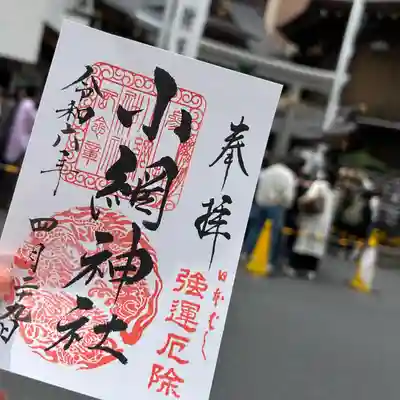 奉拝
日本ばし
強運厄除
小網神社
令和六年
四月二十九日